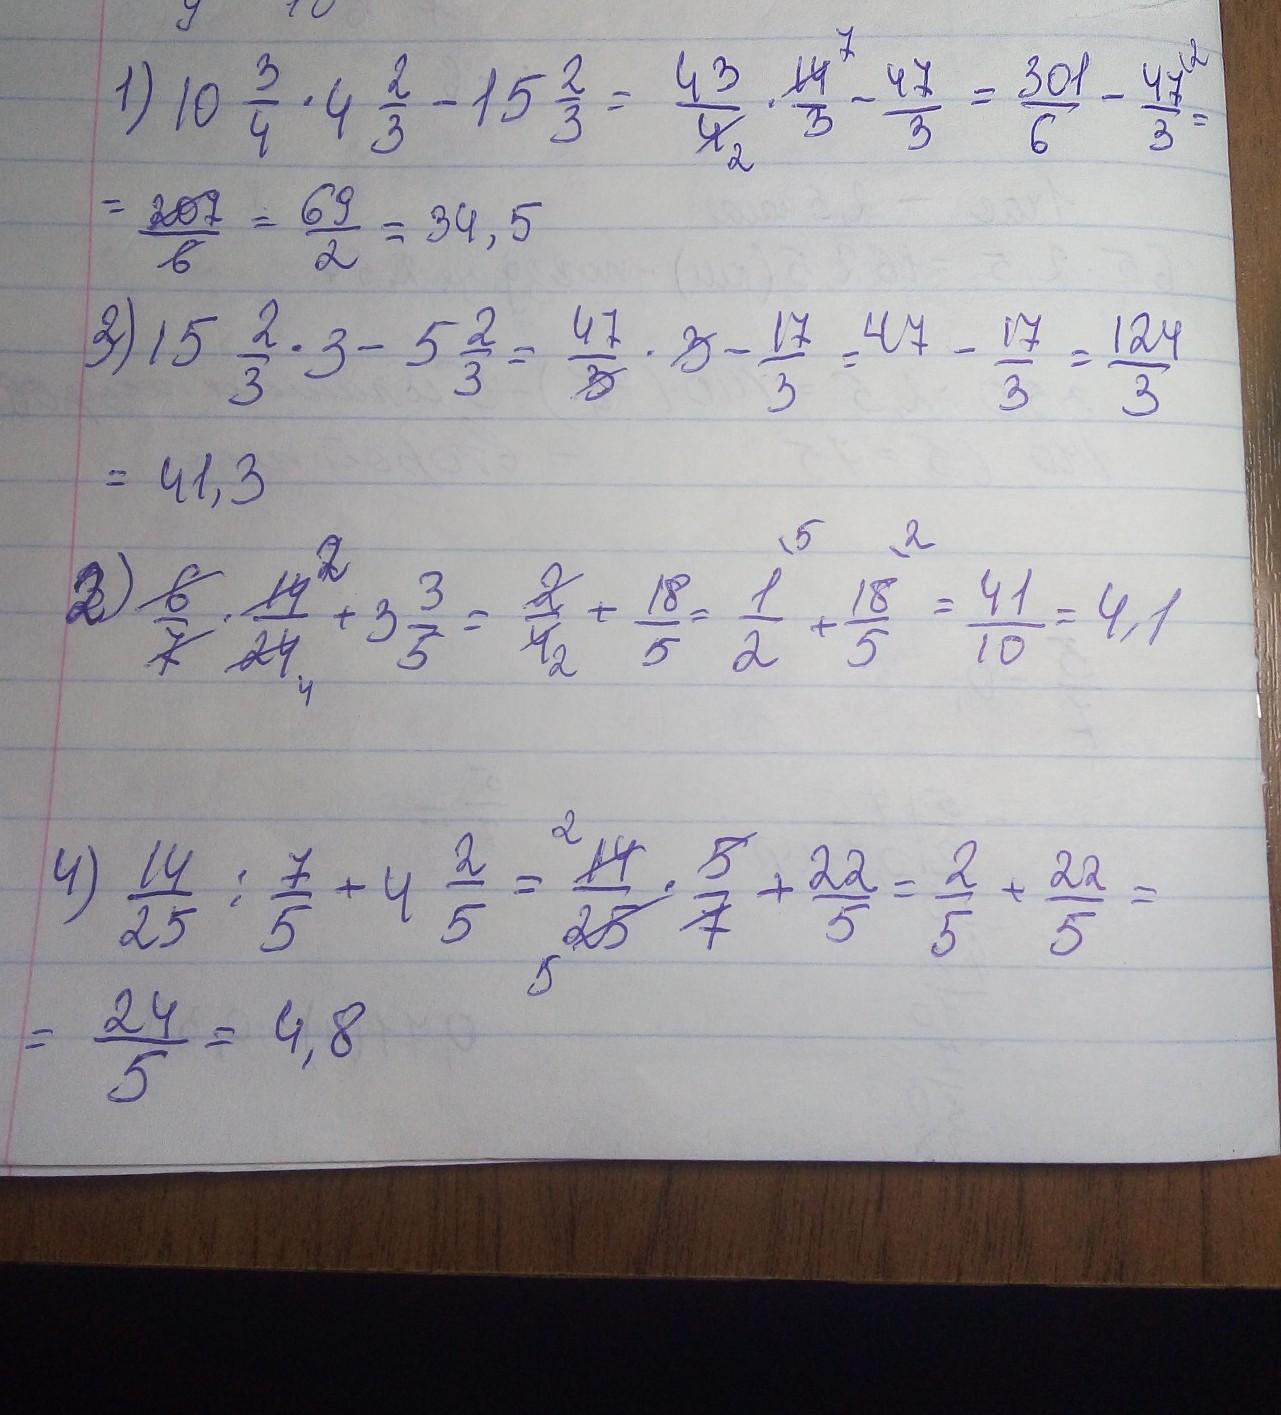 1) 10 3/4 · 4 2/3 - 15 2/3 = 43/4 2 · 14/3 7 - 47/3 = 301/6 - 47/3 2 =
= 207/6 = 69/2 = 34,5
3) 15 2/3 · 3 - 5 2/3 = 47/3 · 3 - 17/3 = 47 - 17/3 = 124/3
= 41,3
2) 6/7 · 14/24 2 4 + 3 3/5 = 2/4 2 + 18/5 = 1/2 5 + 18/5 2 = 41/10 = 4,1
4) 14/25 : 7/5 + 4 2/5 = 2 14/25 5 · 5/7 + 22/5 = 2/5 + 22/5 =
= 24/5 = 4,8